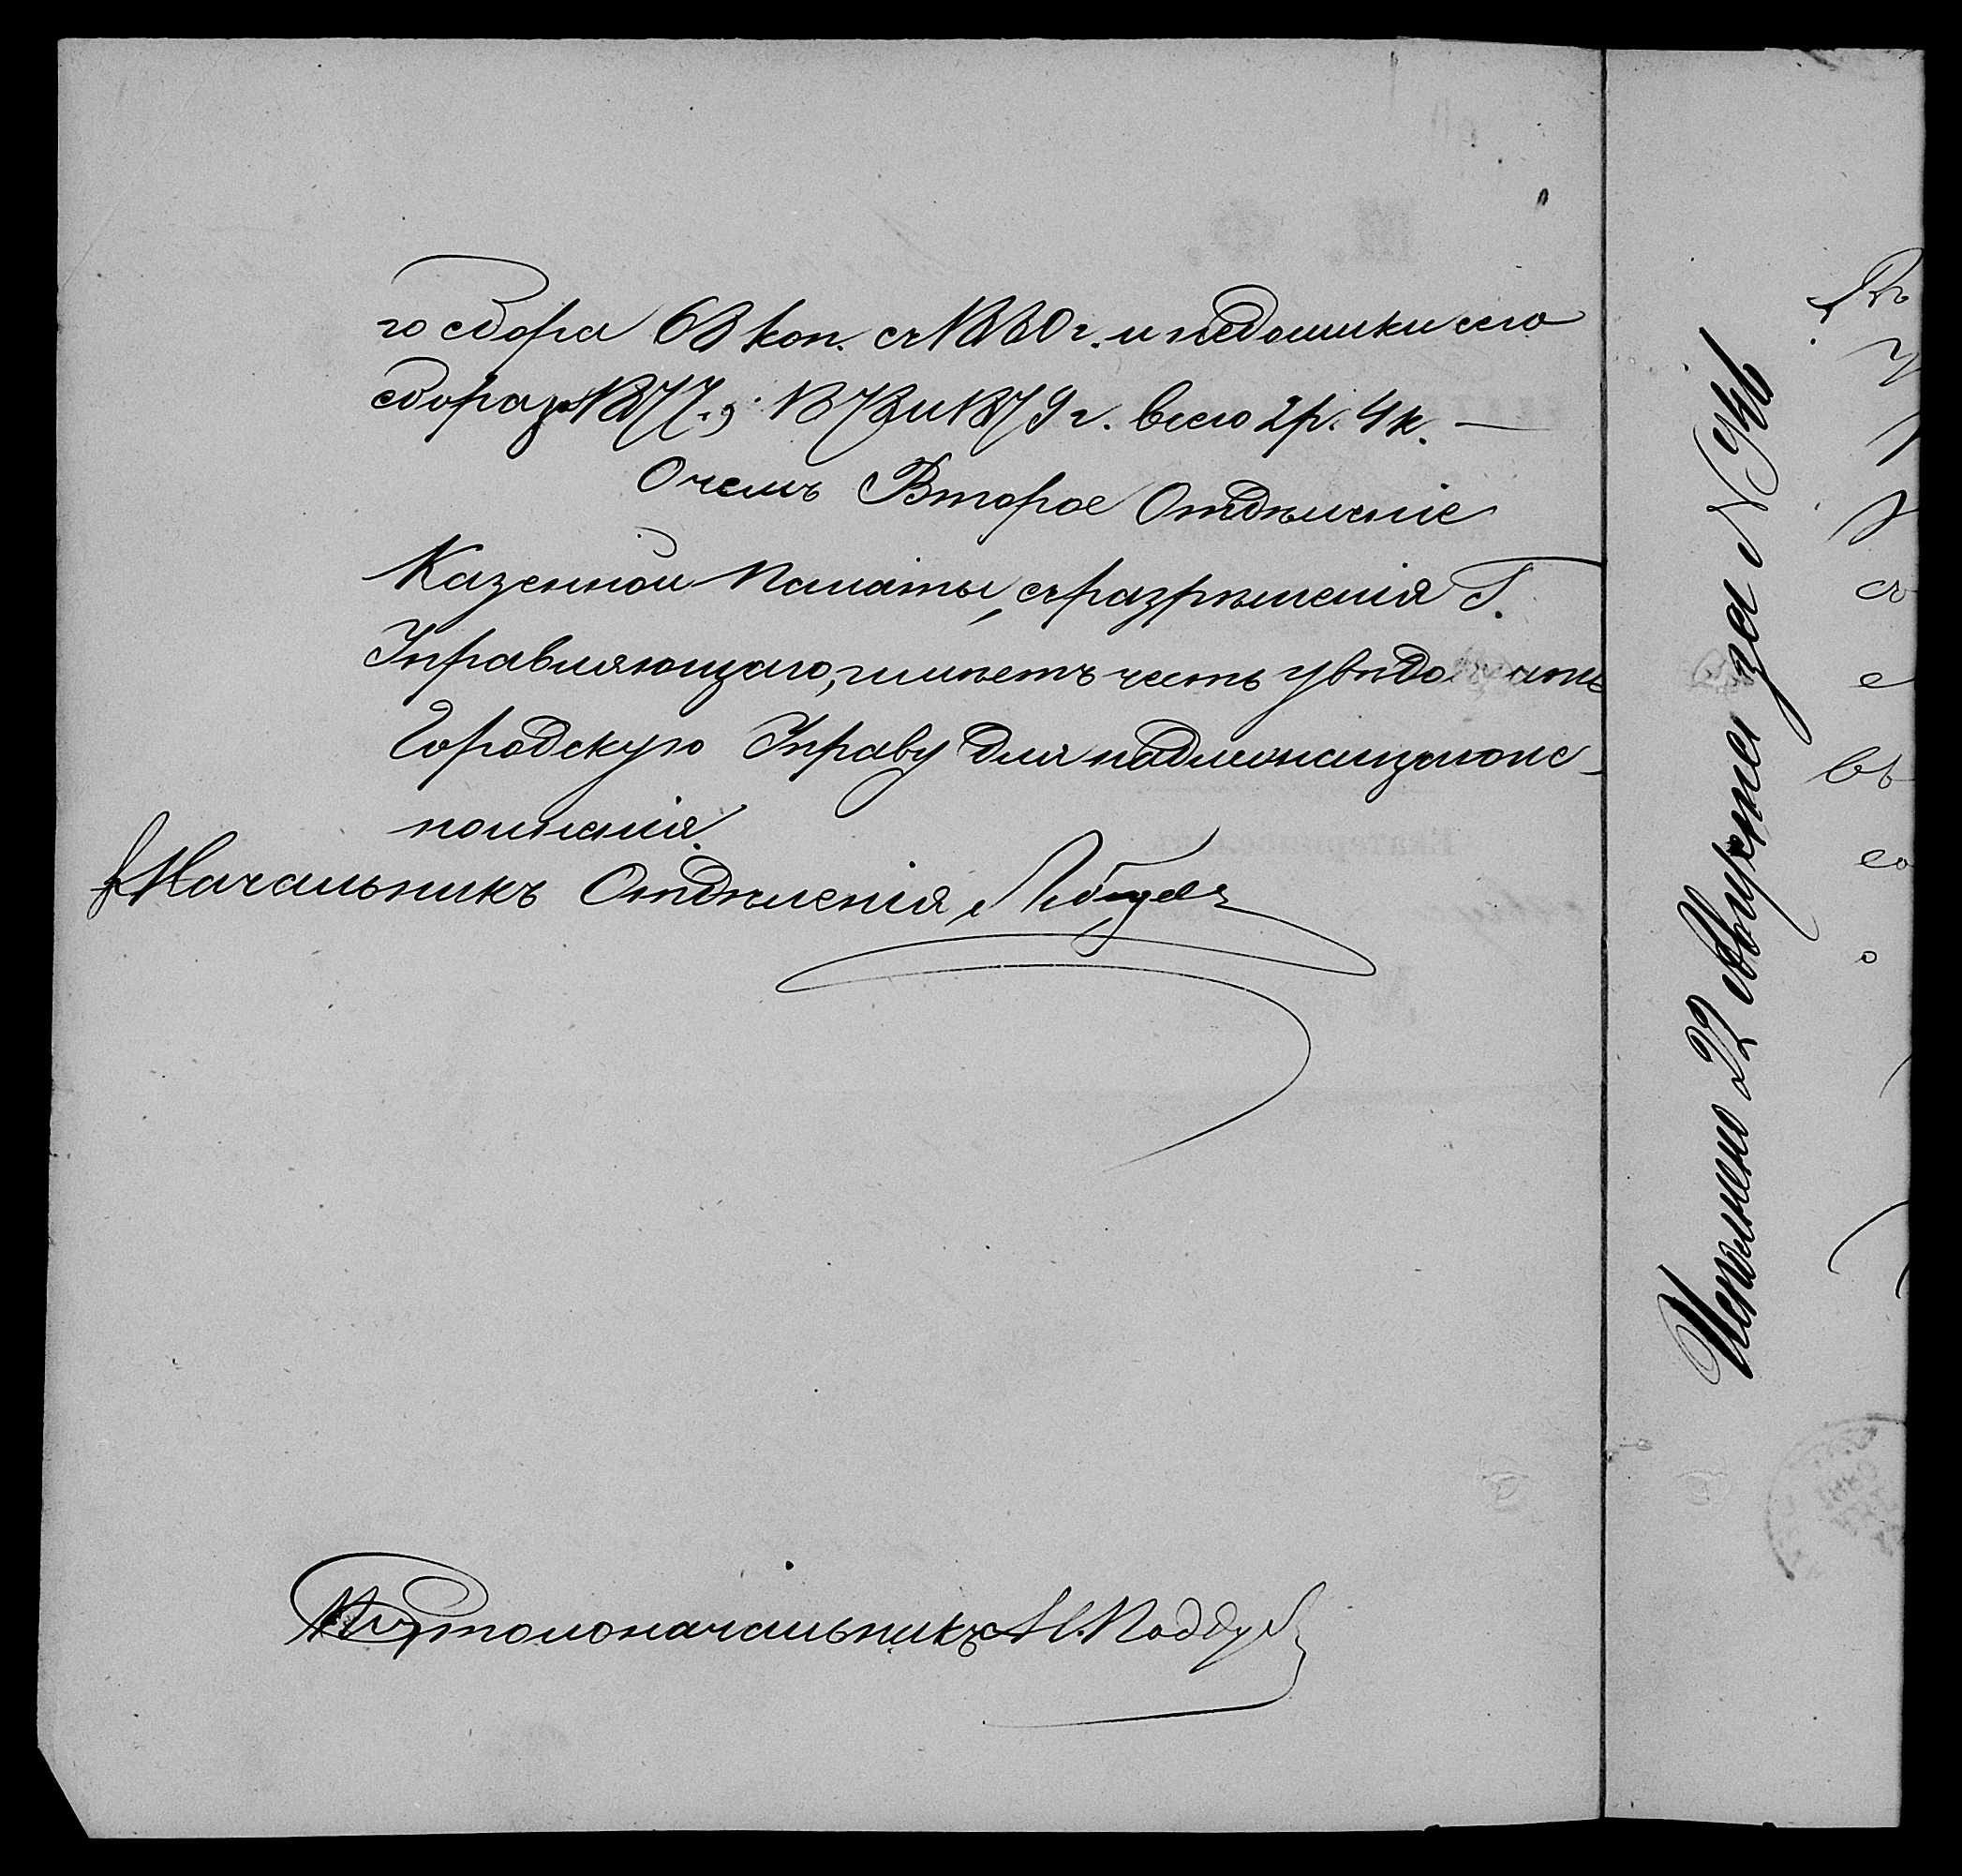 го сбора 68 коп. съ 1880 г. и недоимки сего
сбора за 1877, 1878 и 1879 г. всего 2 р. 4 к. —
О чемъ Второе Отдѣленіе
Казенной Палаты, съ разрѣшенія Г.
Управляющаго, имѣетъ честь увѣдо
Городскую Управу для надлежащаго ис-
полненія.
Начальникъ Отдѣленія
Столоначальникъ
Исполнено 22 Августа за N